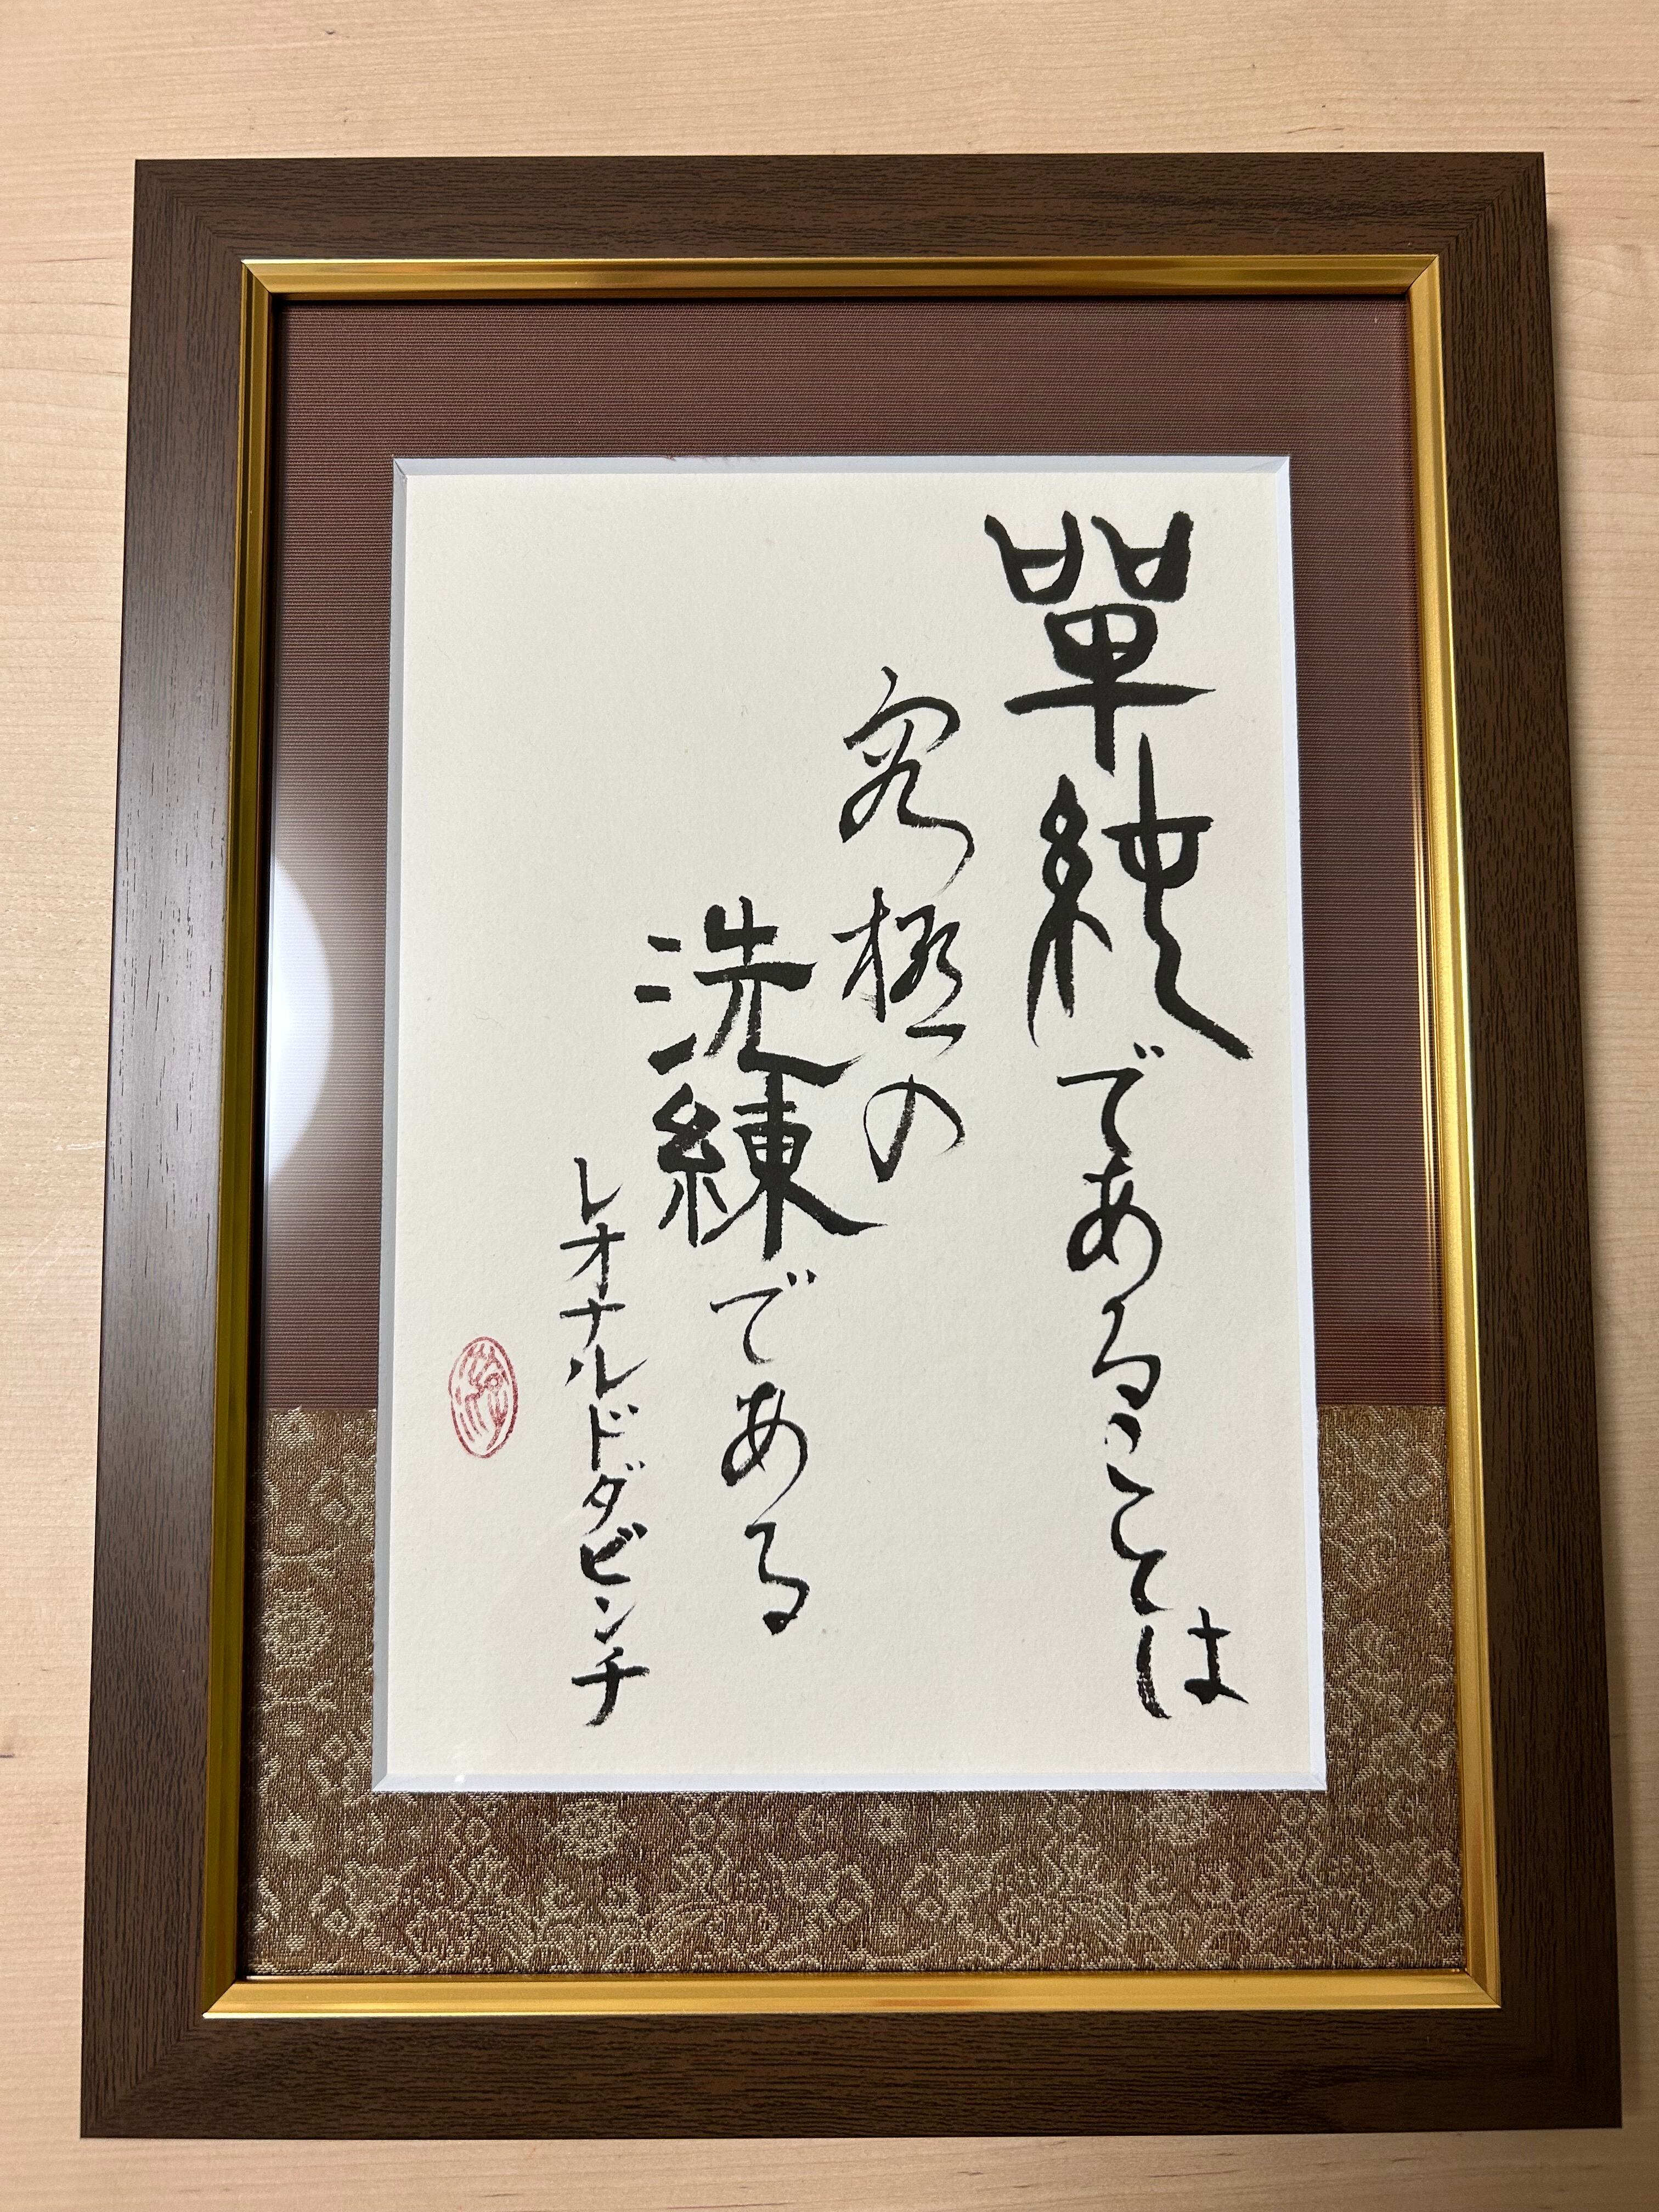 單純であることは
究極の
洗練である
レオナルドダビンチ